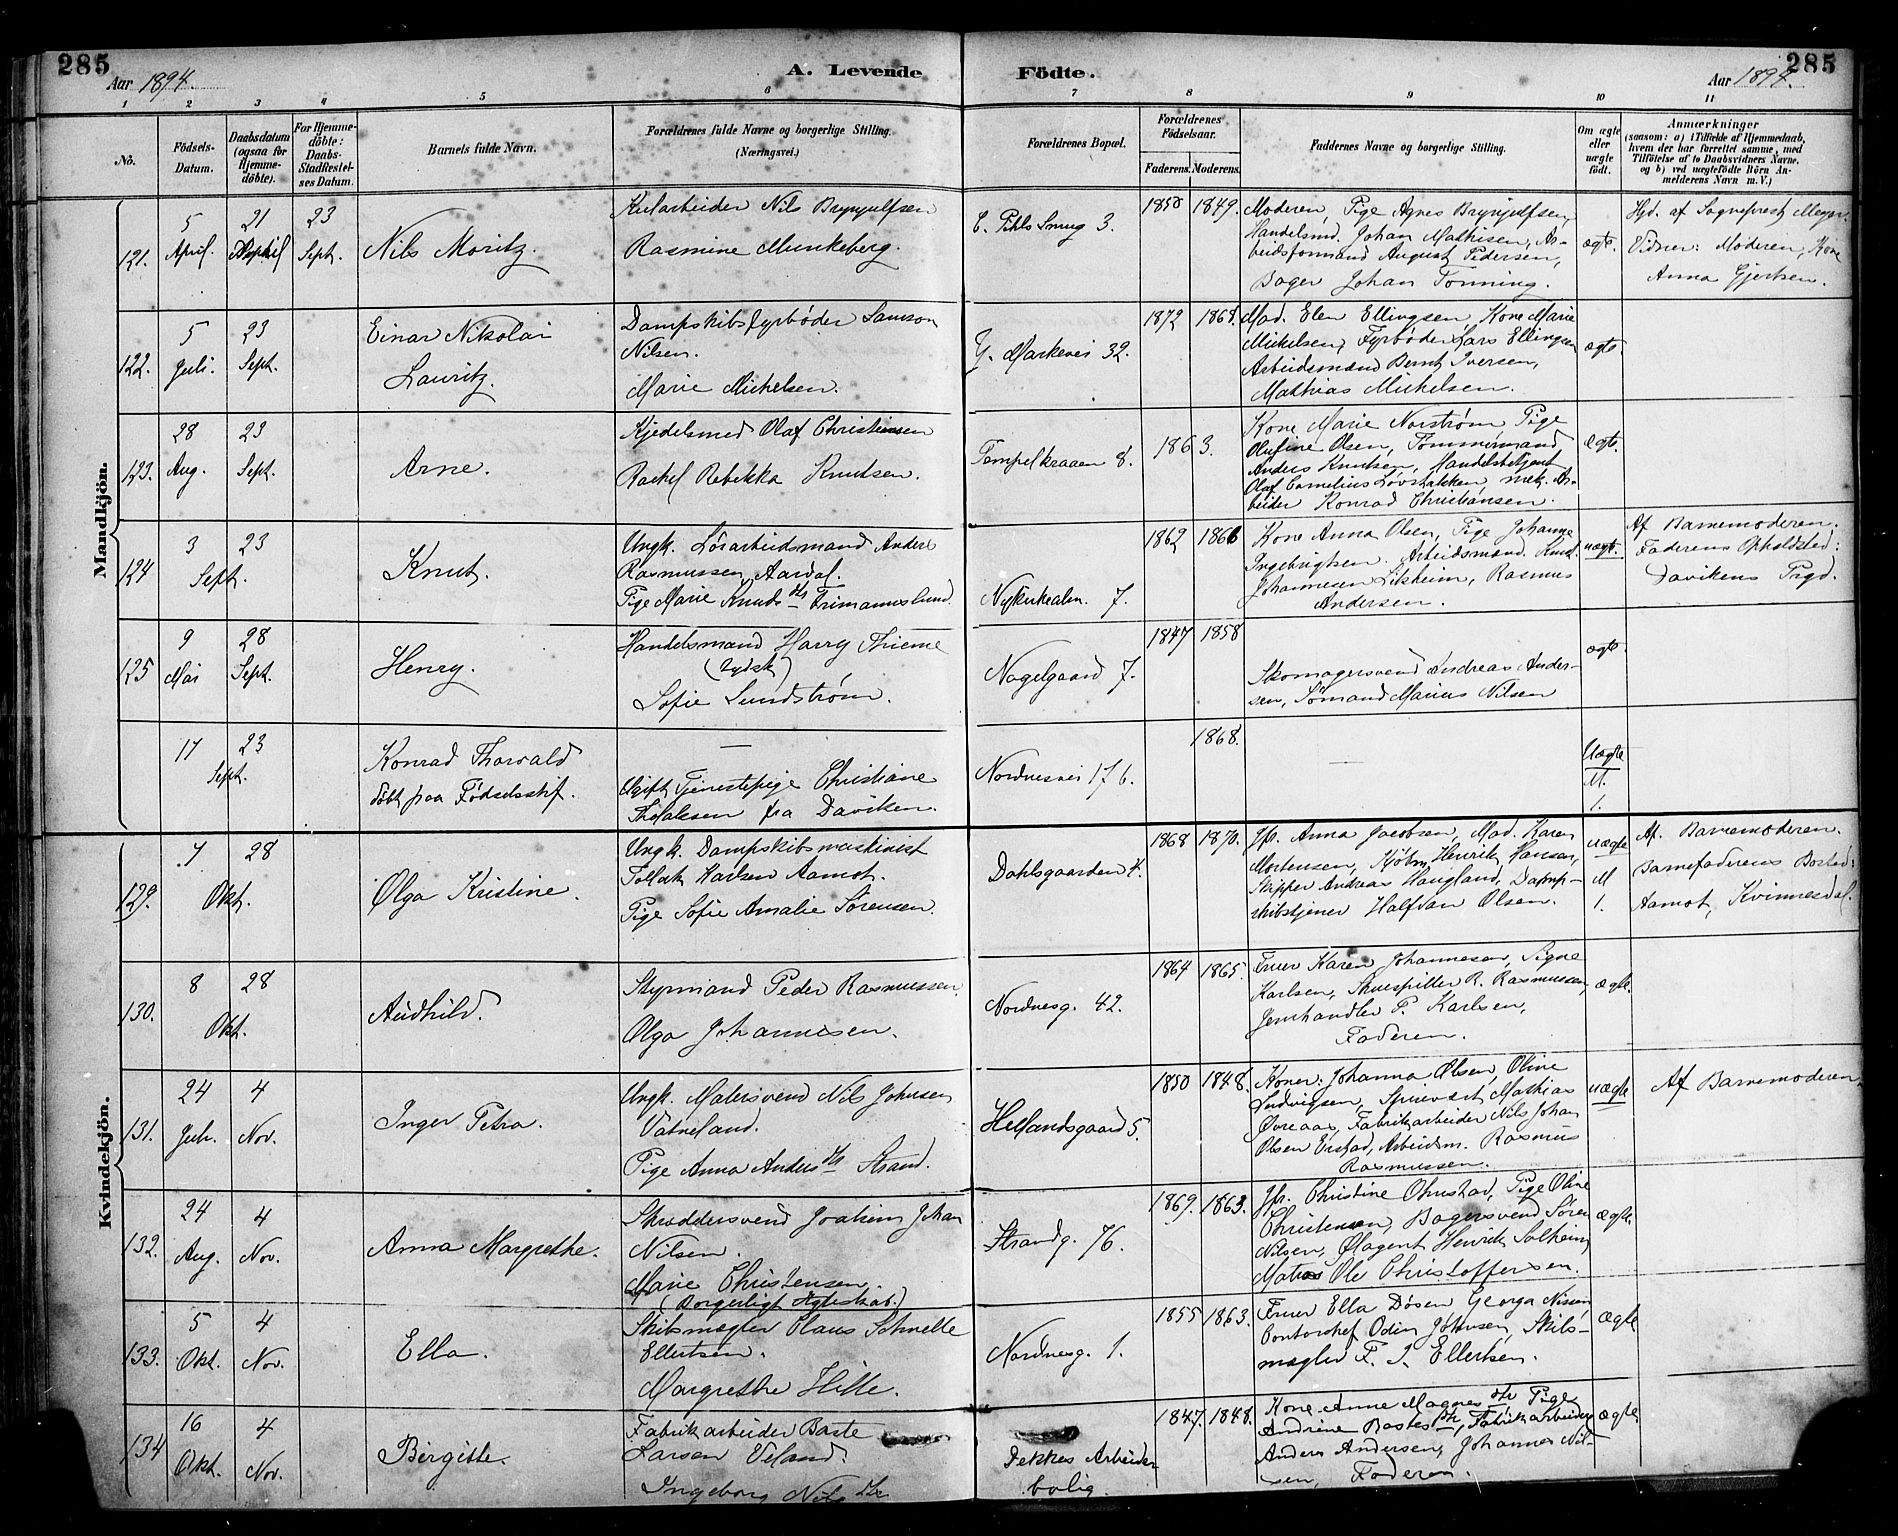 285
285
Aar 1894.
A. Levende
Födte.
Aar 1894.
1 2 3 4 5 6 7 8 9 10 11
No.
Födsels-
Datum.
Daabsdatum
(ogsaa for
Hjemme-
döbte).
For Hjemme-
döbte:
Daabs-
Stadfæstel-
ses Datum.
Barnets fulde Navn.
Forældrenes fulde Navne og borgerlige Stilling.
(Næringsvei.)
Forældrenes Bopæl.
Forældrenes
Födselsaar.
Faderens. Moderens.
Faddernes Navne og borgerlige Stilling.
Om ægte
eller
uægte
födt.
Anmærkninger
(saasom: a) i Tilfælde af Hjemmedaab,
hvem der har forrettet samme, med
Tilföielse af to Daabsvidners Navne,
og b) ved uægtefödte Börn An-
melderens Navn m. V.)
Mandkjön.
121.
5
April.
21
April
23
Sept.
Nils Moritz.
Kularbeider Nils Brynjulfsen
Rasmine Munkeberg.
C. Pihls Smug 3.
1850 1849.
Moderen, Pige Agnes Brynjulfsen,
Handelsmd. Johan Mathisen, Ar-
beidsformand August Pedersen,
Bager Johan Tonning.
ægte.
Hjd. af Sogneprest Meyer.
Vidner: Moderen, Kone
Anna Gjertsen.
122.
5
Juli.
23
Sept.
Einar Nikolai
Lauritz.
Dampskibsfyrbøder Samson
Nilsen.
Marie Mickelsen.
Y. Markevei 32.
1872 1868.
Mad. Elen Ellingsen, Kone Marie
Mickelsen, Fyrbøder Lars Ellingsen
Arbeidsmænd Bernt Iversen,
Mathias Mickelsen.
ægte.
123.
28
Aug.
23
Sept.
Arne.
Kjedelsmed Olaf Christiansen
Rachel Rebekka Knutsen.
Tempelkraaen 8.
1863.
Kone Marie Norstrøm, Pige
Olufine Olsen, Tømmermand
Anders Knutsen, Handelsbetjent
Olaf Cornelius Løvstakken, mek. Ar-
beider Konrad Christiansen.
ægte.
124
3
Sept.
23
Knut.
Ungk. Lørarbeidsmand Anders
Rasmussen Aardal.
Pige Marie Knudsdtr Frimannslund.
Nykirkealm. 7.
1862 1866
Kone Anna Olsen, Pige Johanne
Ingebrigtsen. Arbeidsmænd. Knut
Johannesen Eikheim, Rasmus
Andersen.
uægt.
Af Barnemoderen.
Faderens Opholdsted:
Davikens Prgd.
125
9
Mai
28
Sept.
Henry.
Handelsmand Harry Thieme
(tydsk)
Sofie Sundstrøm.
Nagelgaard 7.
1847 1858
Skomagersvend Andreas Ander-
sen, Sømand Marius Nilsen
ægte.
17
23
Sept.
Konrad Thorvald
døbt paa Fødselsstif.
—
Ugift Tjenestepige Christiane
fra Daviken.
Nordnesvei 17 b.
1868.
—
Uægte
M.
1.
Kvindekjön.
129.
7
Okt.
28
Olga Kristine.
Ungk. Dampskibsmaskinist
Tollak Karlsen Aamot.
Pige Sofie Amalie Sørensen.
Dahlsgaarden 4.
1868 1870.
Jfr. Anna Jacobsen, Mad. Karen
Mortensen, Kjøbm. Henrik Hansen,
Skipper Andreas Haugland, Damp-
skibstjener Halfdan Olsen.
uægte
M
1.
Af. Barnemoderen.
Barnefaderens Bosted:
Aamot, Kvinnesdal.
130.
8
Okt.
28
Audhild.
Styrmand Peder Rasmussen.
Olga Johannesen.
Nordnesg. 42.
1864 1865.
Fruer Karen Johannesen, Signe
Karlsen, Skuespiller R. Rasmussen,
Jernhandler P. Karlsen,
Faderen.
ægte.
131.
24
Juli.
4
Nov.
Inger Petra.
Ungk. Malersvend Nils Johnsen
Vatneland.
Pige Anna Andersdtr Strand.
Hellandsgaard 5.
1850 1848.
Koner: Johanna Olsen, Oline
Ludvigsen, Mathias
Øvreaas, Fabrikarbeider Nils Johan
Olsen Erstad, Arbeidsm. Rasmus
Rasmussen.
uægte
Af Barnemoderen
132.
24
Aug.
4
Nov.
Anna Margrethe.
Skræddersvend Joakim Johan
Nilsen.
Marie Christensen.
(Borgerligt Ægteskab.)
Strandg. 76.
1869. 1863.
Jfr. Christine Onustad, Pige Oline
Christensen, Bagersvend Søren
Nilsen, Ølagent Henrik Solheim,
Matros Ole Christoffersen.
ægte
133.
5
Okt.
4
Nov.
Ella.
Skibsmægler Claus Schnelle
Ellertsen.
Margrethe Hille.
Nordnesg. 1.
1855 1863.
Fruer Ella Døsen, Georga Nissen,
Contorchef Odin Johnsen, Skibs-
mægler F. J. Ellertsen.
ægte
134
16
Okt.
4
Nov.
Birgitte.
Fabrikarbeider Baste
Larsen Veland.
Ingeborg Nilsdtr
Jekkes Arbeider
bolig.
1847. 1848.
Kone Anne Magnesdtr Pige
Andrine Bastesdtr, Fabrikarbeider
Anders Andersen, Johannes Nil-
sen, Faderen.
ægte.